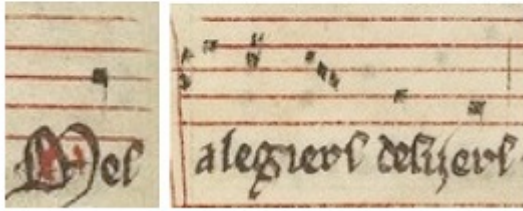 Meſ alegierſ deſizerſ